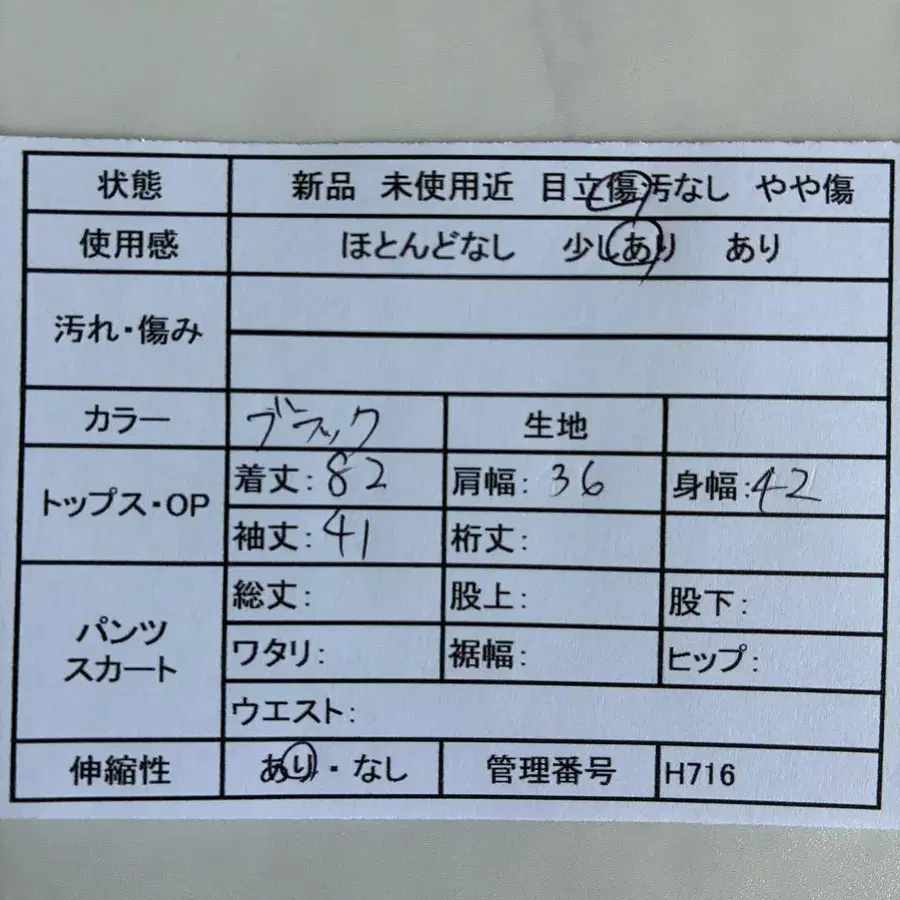 状態 新品 未使用近 目立傷汚なし やや傷
使用感 ほとんどなし 少しあり あり
汚れ・傷み
カラー ブラック 生地
トップス・OP 着丈:82 肩幅:36 身幅:42
袖丈:41 裄丈:
パンツ
スカート
総丈: 股上: 股下:
ワタリ: 裾幅: ヒップ:
ウエスト:
伸縮性 あり・なし 管理番号 H716